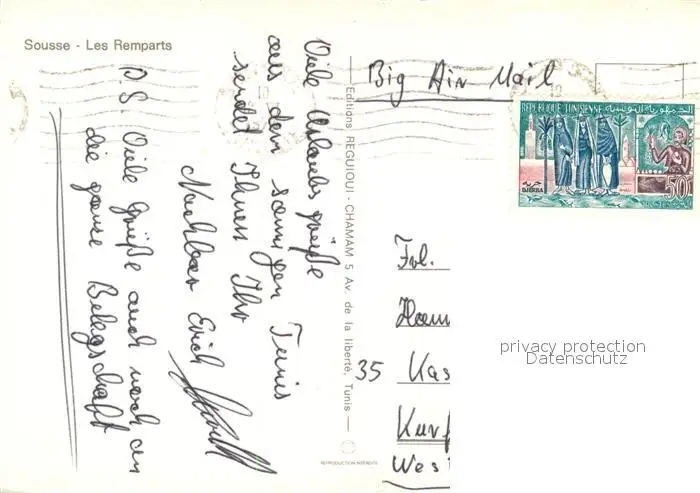 Sousse - Les Remparts
Big Air Mail
REPUBLIQUE TUNISIENNE الجمهورية التونسية
جربة
DJERBA
50
Viele Urlaubsgrüße
aus dem sonnigen Tunis
sendet Ihnen Ihr
Nachbar Erich
P.S. Viele Grüße auch noch an
die ganze Belegschaft
Editions REGUIOUI - CHAMAM 5 Av. de la liberté, Tunis
REPRODUCTION INTERDITE
Frl.
35 Kas
Kurf
Wes
privacy protection
Datenschutz